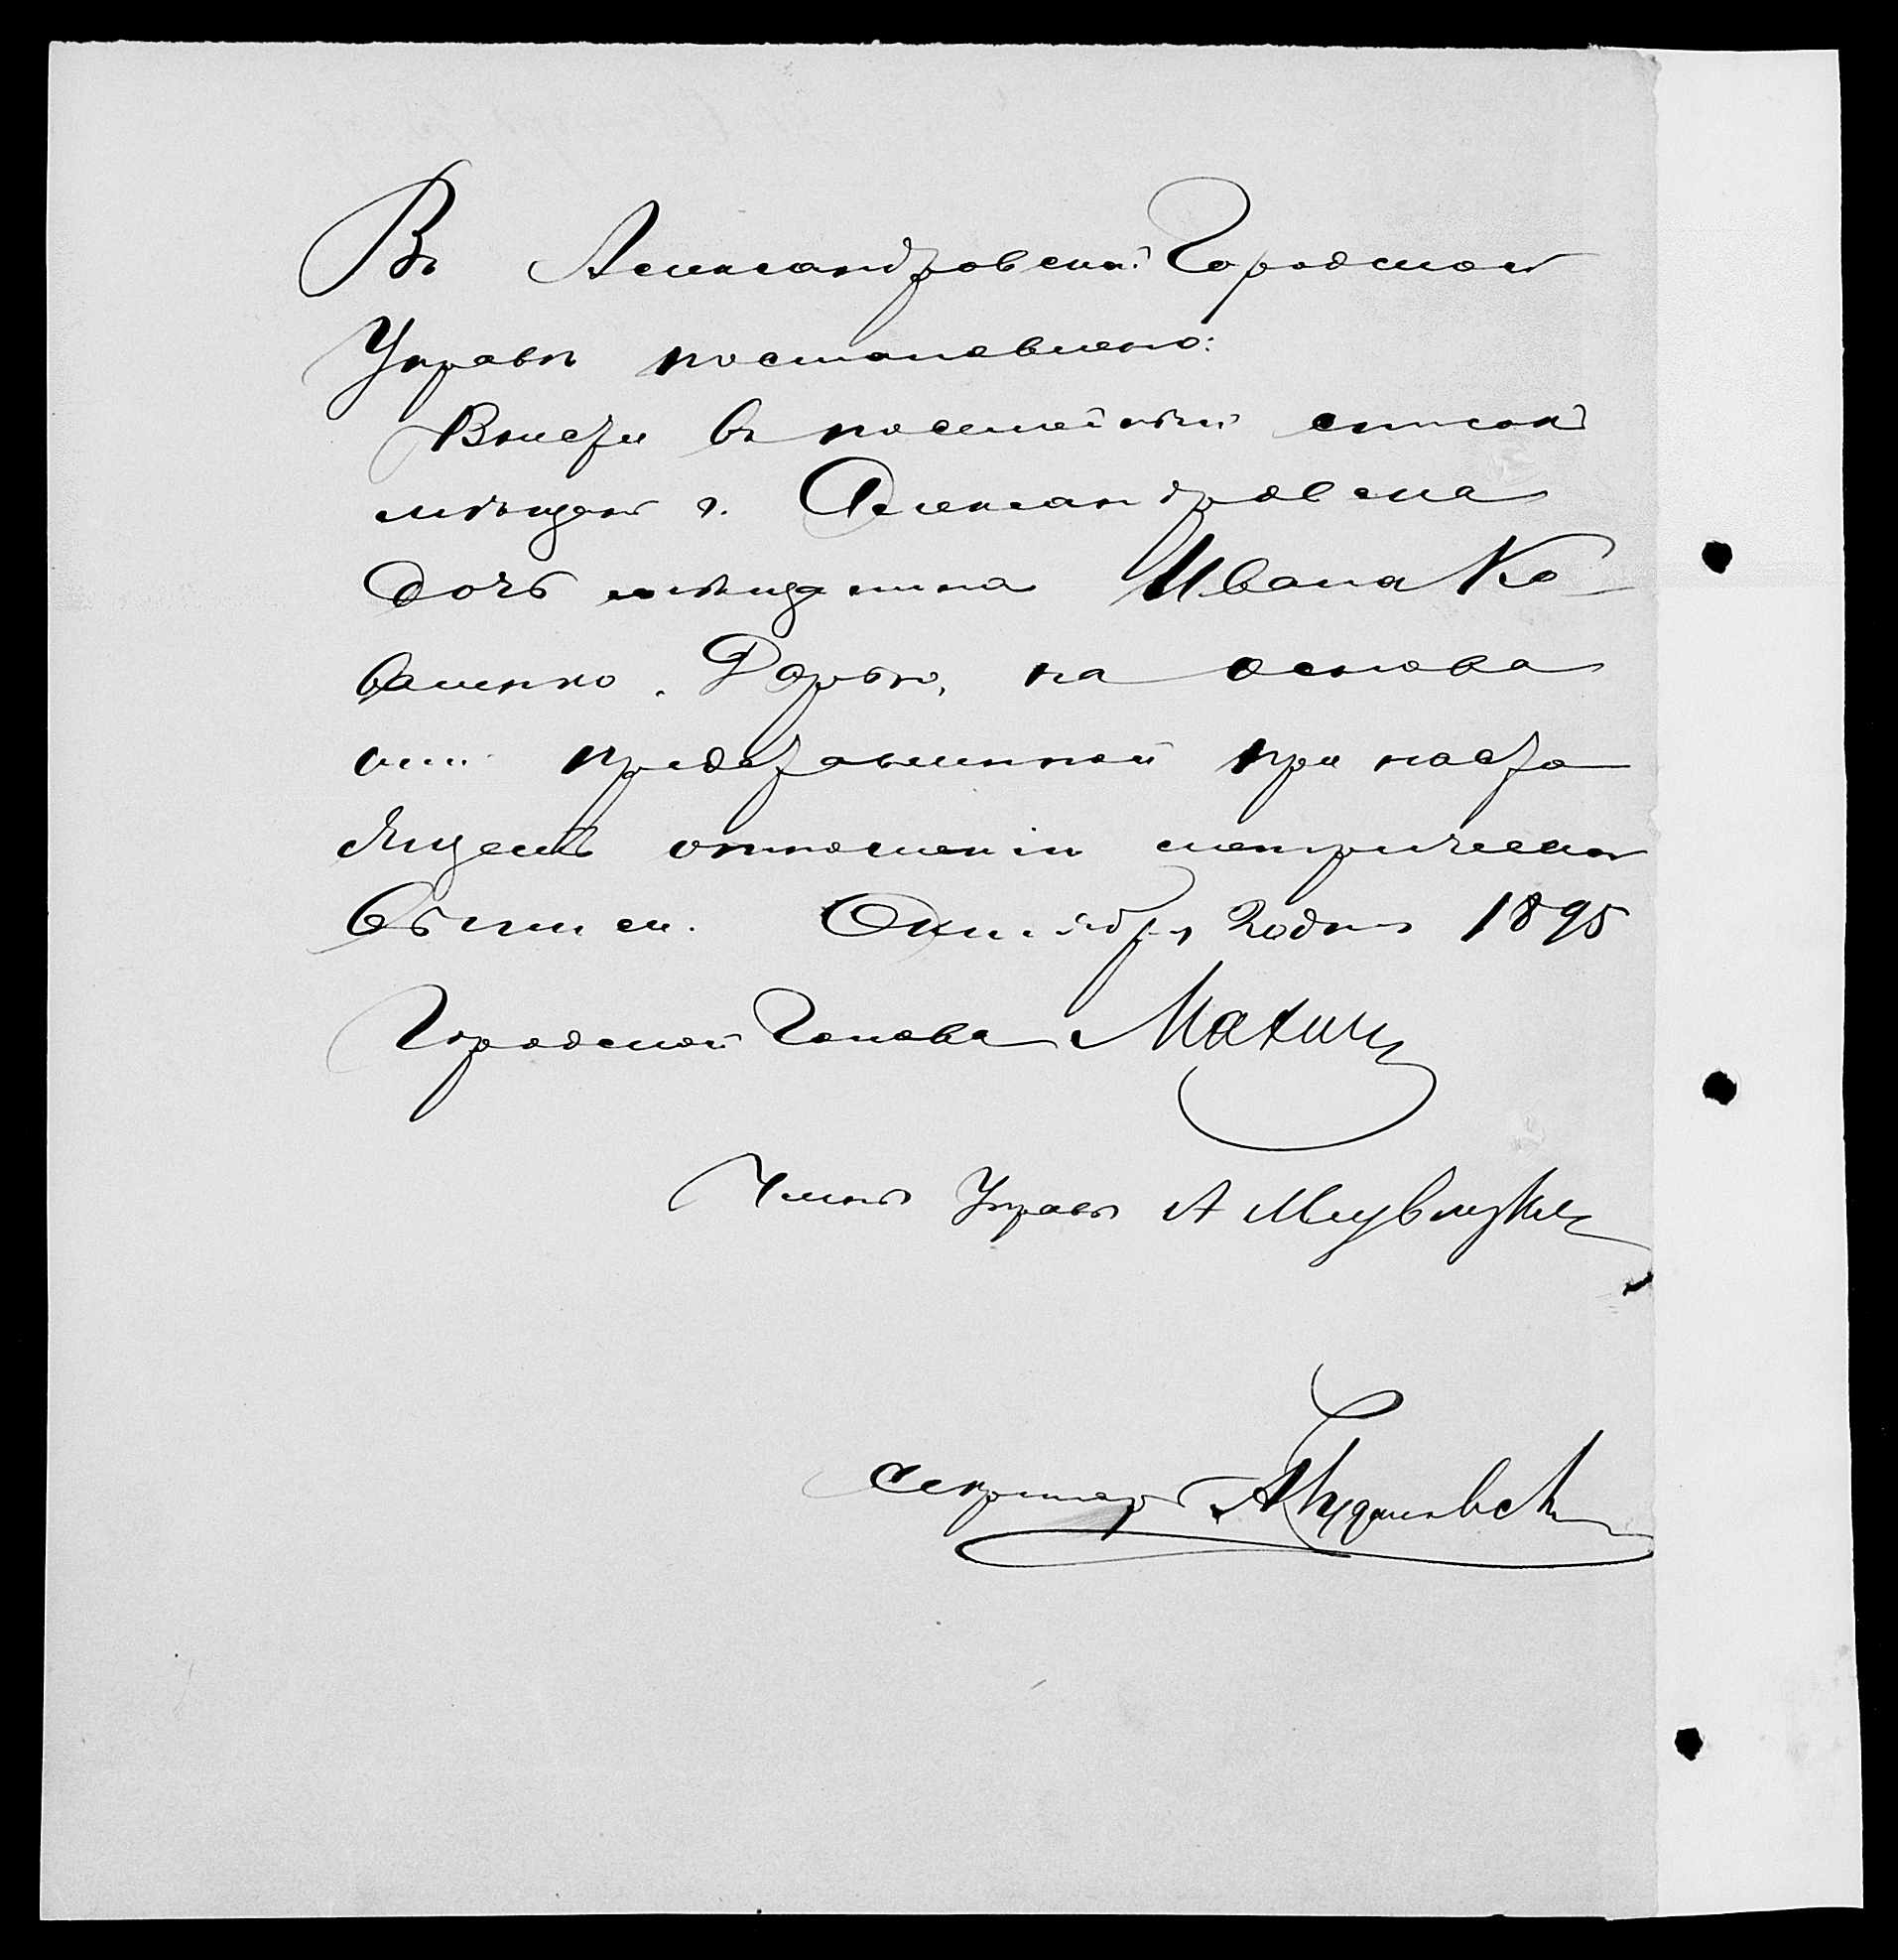 Въ Александровской Городской
Управѣ постановлено:
Внести въ посемейный списокъ
мѣщанъ г. Александровска
дочь мѣщанина Ивана Ко-
валенко, Дарью, на основа
ніи представленной при насто
ящемъ отношеніи метрической
выписи. Октября 20 дня 1895
Городской Голова Махинъ
Членъ Управы А
Секретарь